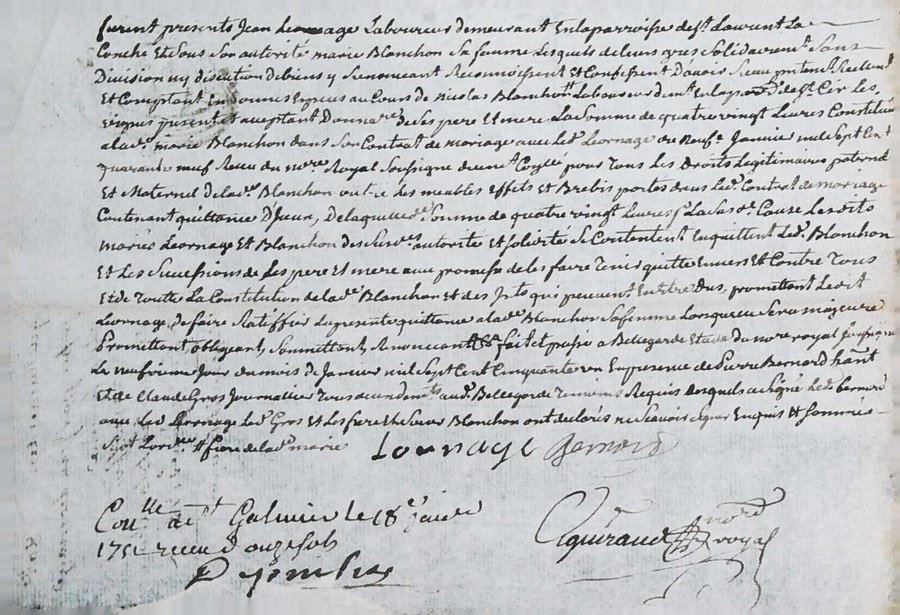 furent présents Jean Leornage Laboureur demeurant En la parroisse de st. Laurent La
Conche Et sous son autorité marie Blanchon sa femme Lesquels de leurs gres solidairemt. sans
Division ny discution de biens y Renonceant Reconnoissent Et Confessent D'avoir Reçu
Et Comptant En bonnes Espèces au Cours de nicolas Blanchon Laboureur demt. En la parr. de st. Cir Les
vignes présent et acceptant De ses pere et mere La somme de quatre vingt Livres Constituée
a lad. marie Blanchon dans son Contrat de mariage avec Led. Leornage du neufe. Janvier mil sept Cent
quarante neuf Reçu du nore. Royal soussigné pour Tous Les Droits Legitimaires paternel
Et Maternel de lad. Blanchon outre des meubles Effets et Brebis portés dans Led. Contrat de mariage
Contenant quittance D'iceux, De laquelle somme de quatre vingt Livres Lesdits
mariés Leornage Et Blanchon des susd. autorité et solidité se Contentent En quittent Led. Blanchon
Et Les successions de ses pere Et mere avec promesse de les faire Tenir quitte Envers Et Contre Tous
Et de Toutte La Constitution de lad. Blanchon Et des Intts. qui peuvent En Etre Dus, promettant Ledit
Leornage, de faire Ratiffier La presente quittance a lad. Blanchon sa femme Lorsqu'elle sera majeure
Promettant obligeant, soumettant, Renonceant &a. fait et passé a Bellegarde Etude du nore. royal soussigné
Le neufvieme Jour du mois de Janvier mil sept Cent Cinquante un En presence de Pierre Bernard
Et de Claude Gros Journallier Tous deux demts. aud. Bellegarde Temoins Requis Lesquels a signé Led. Bernard
avec Led. Leornage Led. Gros et Les frere Et sœur Blanchon ont déclaré ne scavoir signer Enquis Et sommés
frere de lad. marie
Lournage Bernard
Conlle. a st. Galmier le 18e. janvier
1751 reçu douze sols
Aguiraud nore. royal